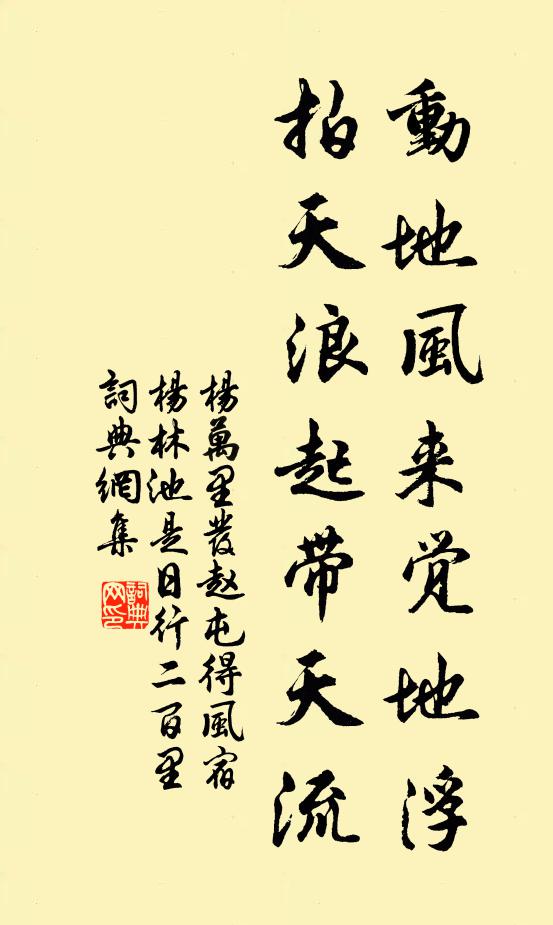 動地風来覺地浮
拍天浪起帶天流
楊萬里發赵屯得風宿
楊林池是日行二百里
詞典網集
詞典网印